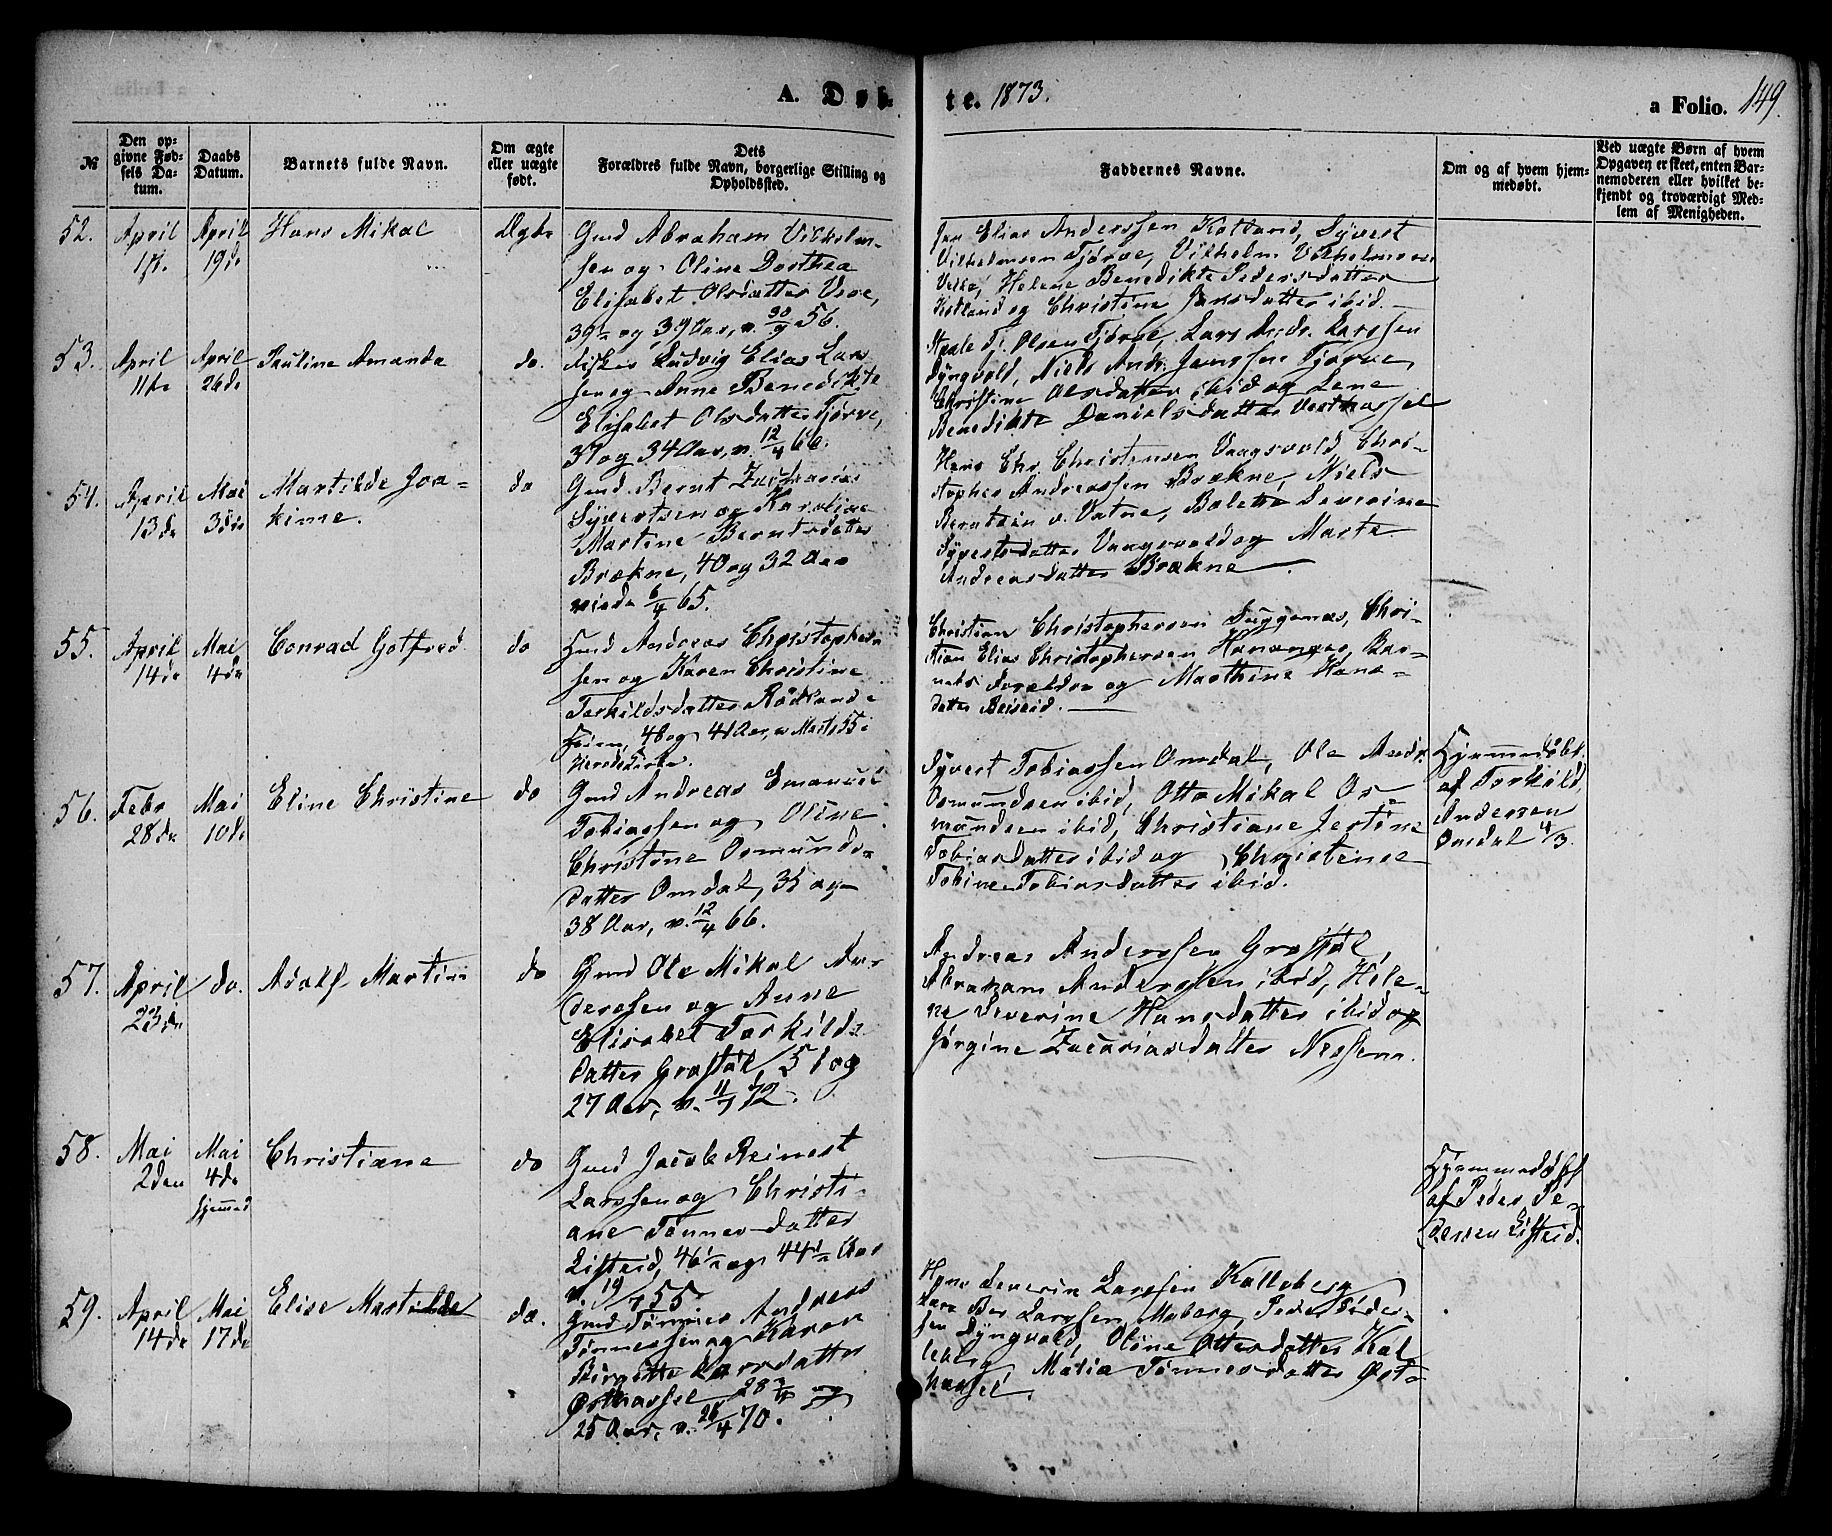 A. Døb-
te. 1873.
a Folio. 149.
№
Den op-
givne Fød-
sels Da-
tum.
Daabs
Datum.
Barnets fulde Navn.
Om ægte
eller uægte
født.
Dets
Forældres fulde Navn, borgerlige Stilling og
Opholdssted.
Faddernes Navne.
Om og af hvem hjem-
medøbt.
Ved uægte Børn af hvem
Opgaven er skeet, enten Bar-
nemoderen eller hvilket be-
kjendt og troværdigt Med-
lem af Menigheden.
52.
April
April
19de
Hans Mikal
Ægte
Gmd Abraham Vilhelm-
sen og Oline Dorthea
Elisabet Olsdatter
39½ og 39 Aar, v. 30/9 56.
Jan Elias Anderssen Kolland, Syvert
Vilhelmsen Tjørve, Vilhelm Vilhelmsen
Helene Benedikte Pedersdatter
og Christine Jansdatter ibid.
53.
April
11te
April
26de
Pauline Amanda
do.
Fisker Ludvig Elias Lars
sen og Anne Benedikte
Elisabet Olsdatter Tjørve,
37 og 34 Aar, v. 12/4 66.
Olsen Tjørve, Lars Andr. Larssen
Dyngvold, Niels Andr. Jenssen Tjørve,
Christine Olsdatter ibid og Lene
Benedikte Danielsdatter Vesthassel
54.
April
13de
Mai
3die
Martilde Joa-
kime.
do
Gmd Bernt Zacharias
Syvertsen og Karoline
Martine Berntsdatter
Brækne, 40 og 32 Aar
viede 6/4 65.
Hans Chr. Christensen Vaagsvold, Chri-
stopher Andreassen Brækne, Niels
Berntsen v. Vatne, Bolette Severine
Syvertsdatter Vaagsvold og Marte
Andreasdatter Brækne
55.
April
14de
Mai
4de
Conrad Gotfred
do
Gmd Andreas Christopher
sen og Karen Christine
Torkildsdatter Rødland
48 og 41 Aar,
Christian Christophersen Chri-
stian Elias Christophersen Hananger, Bar-
nets Forældre og Marthine Hans-
datter
56.
Febr
28de
Mai
10de
Eline Christine
do
Gmd Andreas Emanuel
Tobiassen og Oline
Christine Osmunds-
datter Omdal, 35 og
38 Aar, v. 12/4 66.
Syvert Tobiassen Omdal, Ole Andr.
Osmundsen ibid, Otto Mikal Os-
mundsen ibid, Christiane Jestine
Tobiasdatter ibid og Christense
Tobine Tobiasdatter ibid.
Hjemmedøbt
af Torkild
Andersen
Omdal 4/3.
57.
April
23de
do.
Adolf Martin
do
Gmd Ole Mikal An-
derssen og Anne
Elisabet Torkilds-
datter Grostøl, 51 og
27 Aar, v. 11/7 72.
Andreas Anderssen Grostøl,
Abraham Anderssen ibid, Hele-
ne Severine Hansdatter ibid og
Jørgine Zacariasdatter
58.
Mai
2den
Mai
4de
hjemmed
Christiane
do
Gmd Jacob Reinert
Larssen og Christi-
ane Tønnesdatter
Listeid, 46½ og 44½ Aar
v. 19/7 55
Hjemmedøbt
af Peder Pe-
dersen Listeid.
59.
April
14de
Mai
17de
Elise Martilde
do.
Gmd Tønnes Andreas
Tønnessen og Karen
Birgitte Larsdatter
Østhassel 28 3/4 og
25 Aar, v. 26/4 70.
Hans Severin Larssen Kalleberg
Lars Ber Larssen Maberg, Peder Peder-
sen Dyngvold, Oline Ottersdatter Kal
leberg, Malia Tønnesdatter Øst-
hassel.